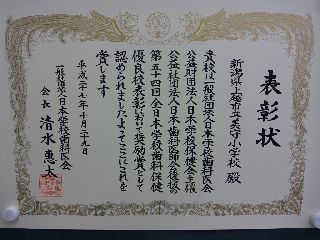 表彰状
新潟県上越市立美守小学校 殿
貴校は一般社団法人日本学校歯科医会
公益財団法人日本学校保健会主催
公益社団法人日本歯科医師会後援の
第五十四回全日本学校歯科保健
優良校表彰において奨励賞として
認められましたよってここにこれを
賞します
平成二十七年十月二十九日
一般社団法人日本学校歯科医会
会長 清水惠太